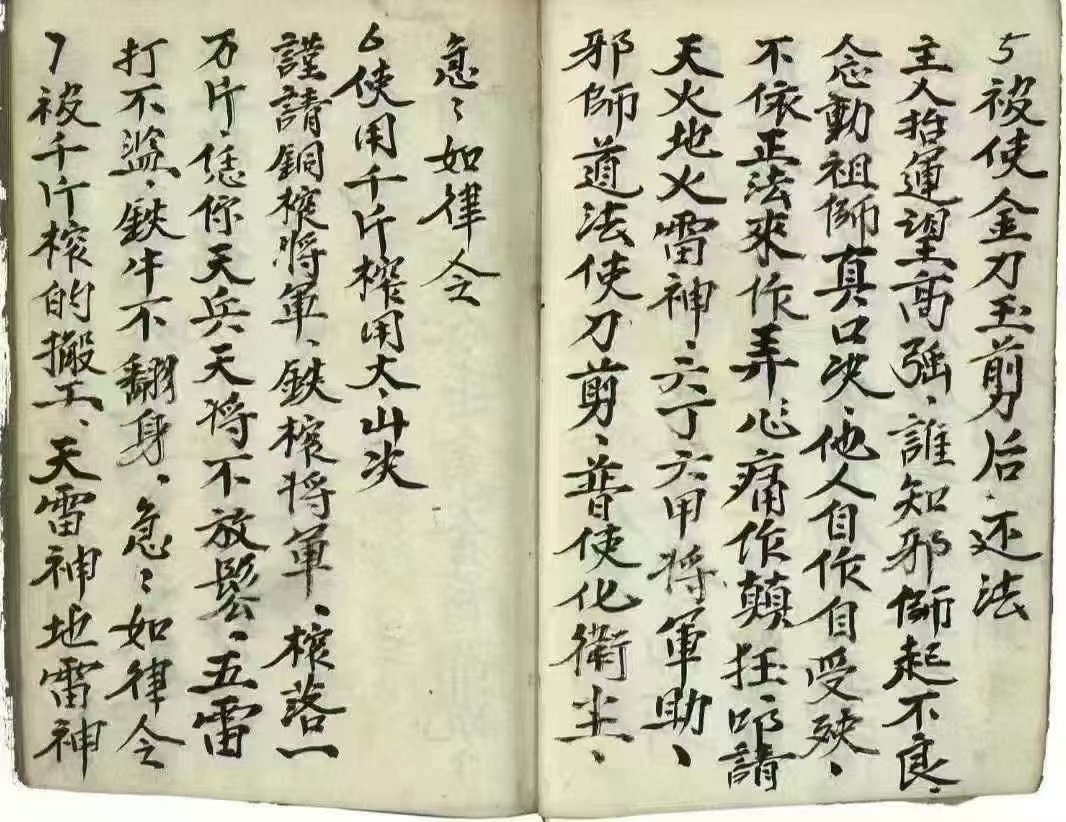 5被使金刀玉剪后、还法
主人抬運望高强、誰知邪師起不良、
念動祖師真口决、他人自作自受殃、
不依正法來作弄心痛作顛狂、叩請
天火地火雷神、六丁六甲将軍助、
邪師道法使刀剪、普使化衛尘、
急〻如律令
6使用千斤榨用大、山决
謹請銅榨将軍、鉄榨将軍、榨落一
万斤、恁你天兵天将不放鬆、五雷
打不濫、鉄牛不翻身、急〻如律令
7被千斤榨的搬工、天雷神地雷神